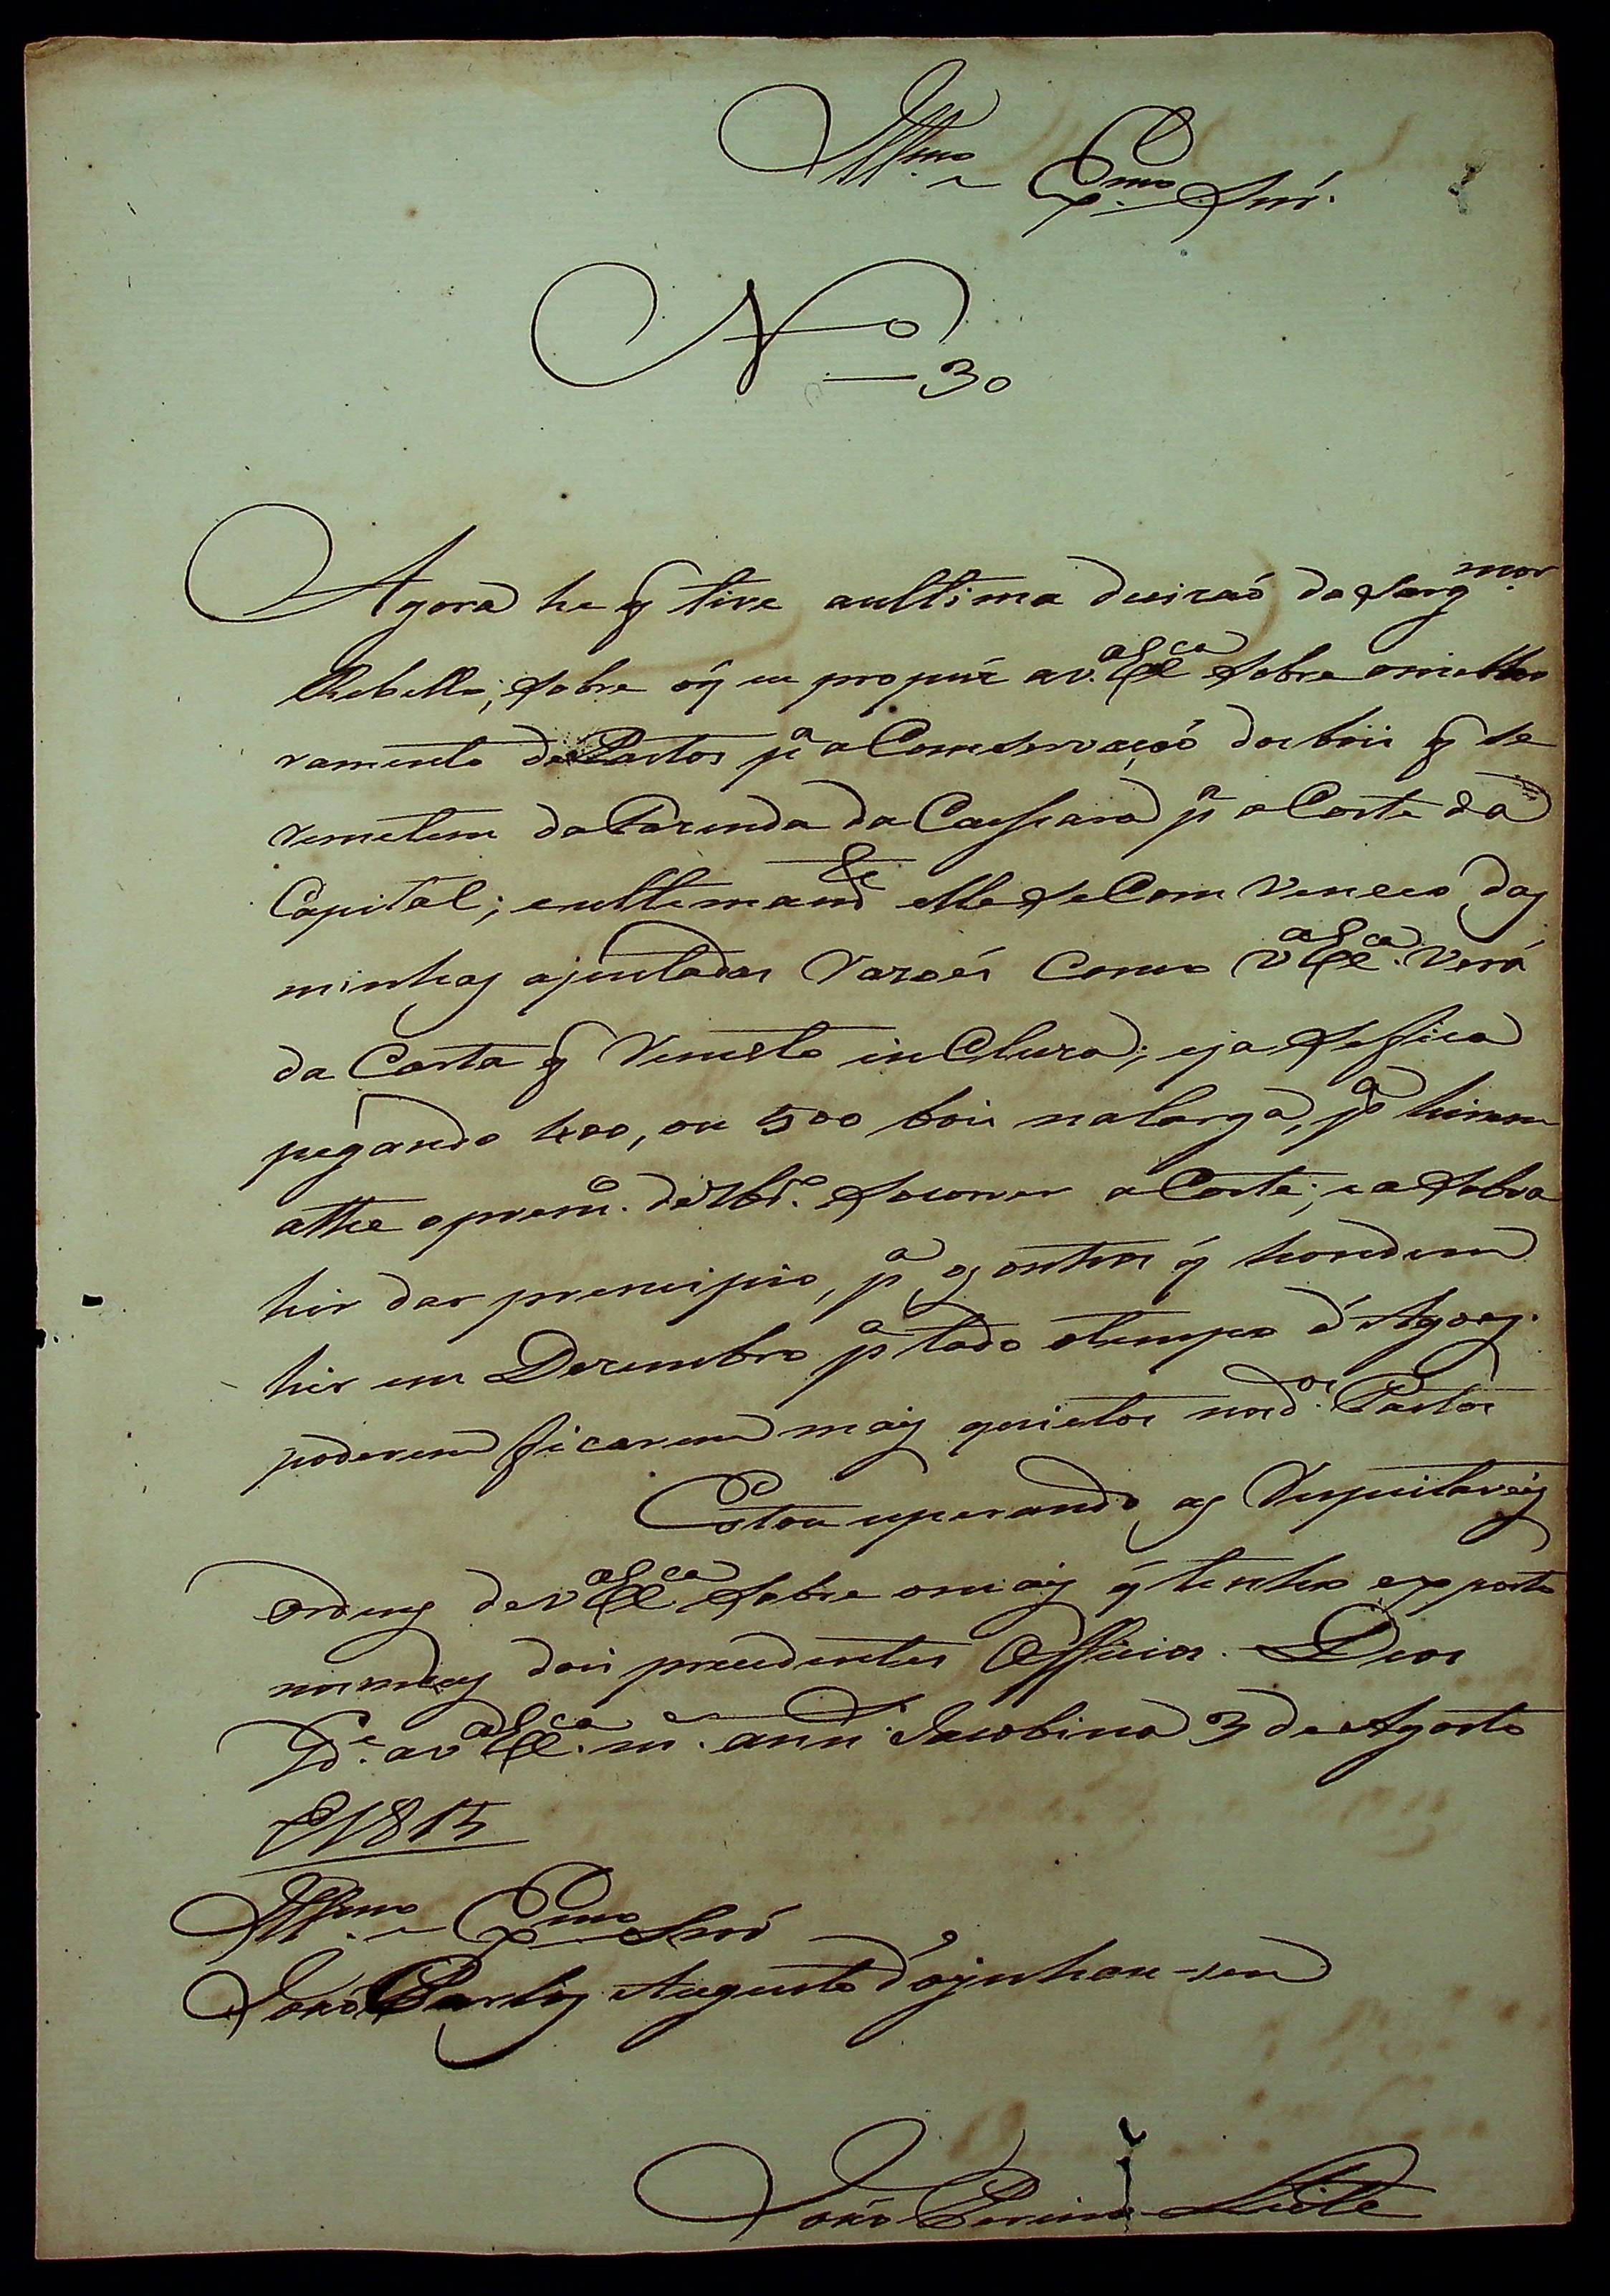 Illmo. e Exmo. Snr.
No 30
Agora he q̃ tive aultima decizaó do Sargmor.
Rebello; sobre oq̃ eu propuz av.aExca sobre omelho
ramento de Pastos pa. aComservaçaó dos bois q̃ se
remetem da Fazenda da Caissara pa. a Corte da
Capital; eulltemamte elle seComvenceo das
minhas ajuntadas razoés Como V.aExca. verá
da Carta q̃ remeto incluza; eja se fica
pegando 400, ou 500 bois nalarga, pa. hirem
athe oprimro. de 7bro. Socorrer aCorte; ea sobra
hir dar prencipio, pa. os outros q̃ houverem
hir em Dezembro pa. todo otempo d'Agoas.
poderem ficarem mais quietos nosdos. Pastos
Estou esperando as respeitaveis
Ordens de V.aExca. sobre omais q̃ tenho exposto
nos meus dois precedentes Officios. Deos
Gde. aV.aExca. m. ann. Jacobina 3 de Agosto
de 1815
Illmo. e Exmo. Snr.
Joaó Carlos Augusto d'Oÿnhau-sen
Joáo Pereira Leite